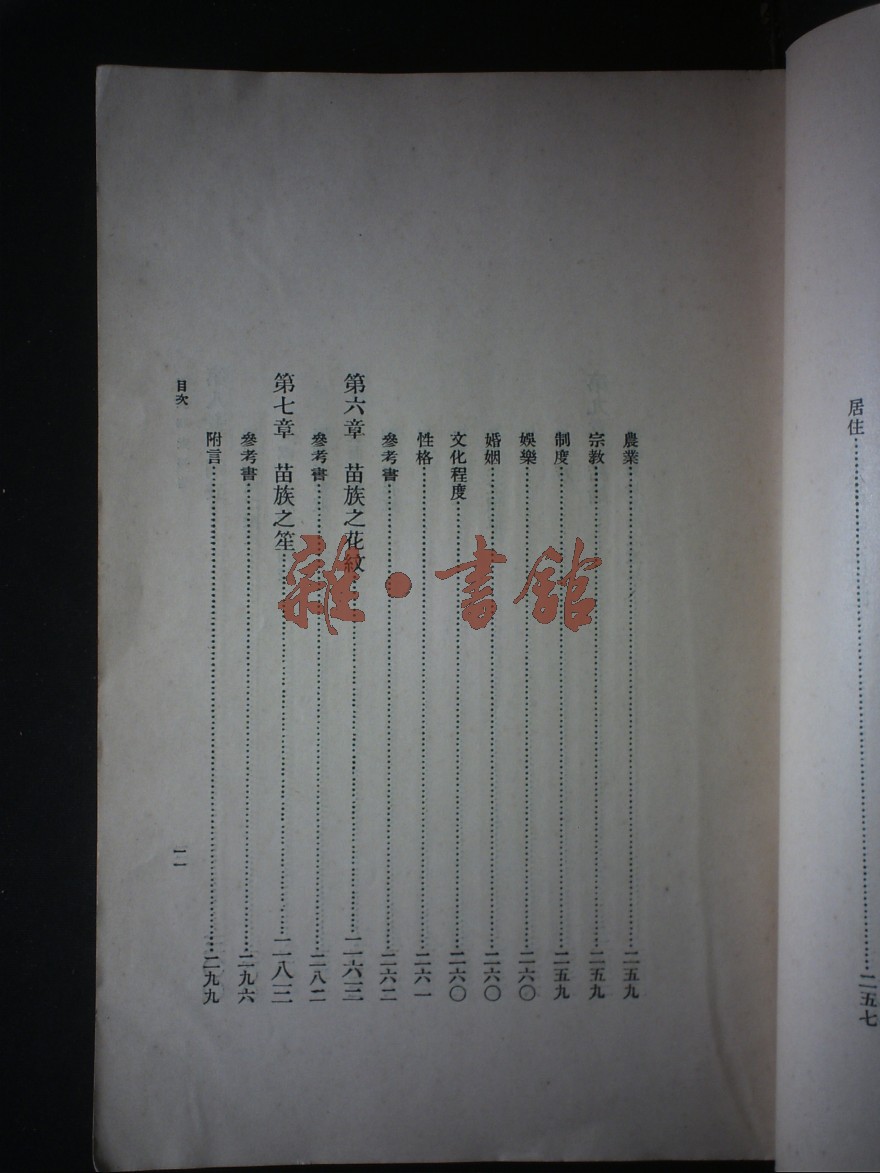 居住……二五七
農業……二五九
宗教……二五九
制度……二五九
娛樂……二六〇
婚姻……二六〇
文化程度……二六〇
性格……二六一
參考書……二六二
第六章 苗族之花紋……二六三
參考書……二八二
第七章 苗族之笙……二八三
參考書……二九六
附言……二九九
目次 一一
雜·書館